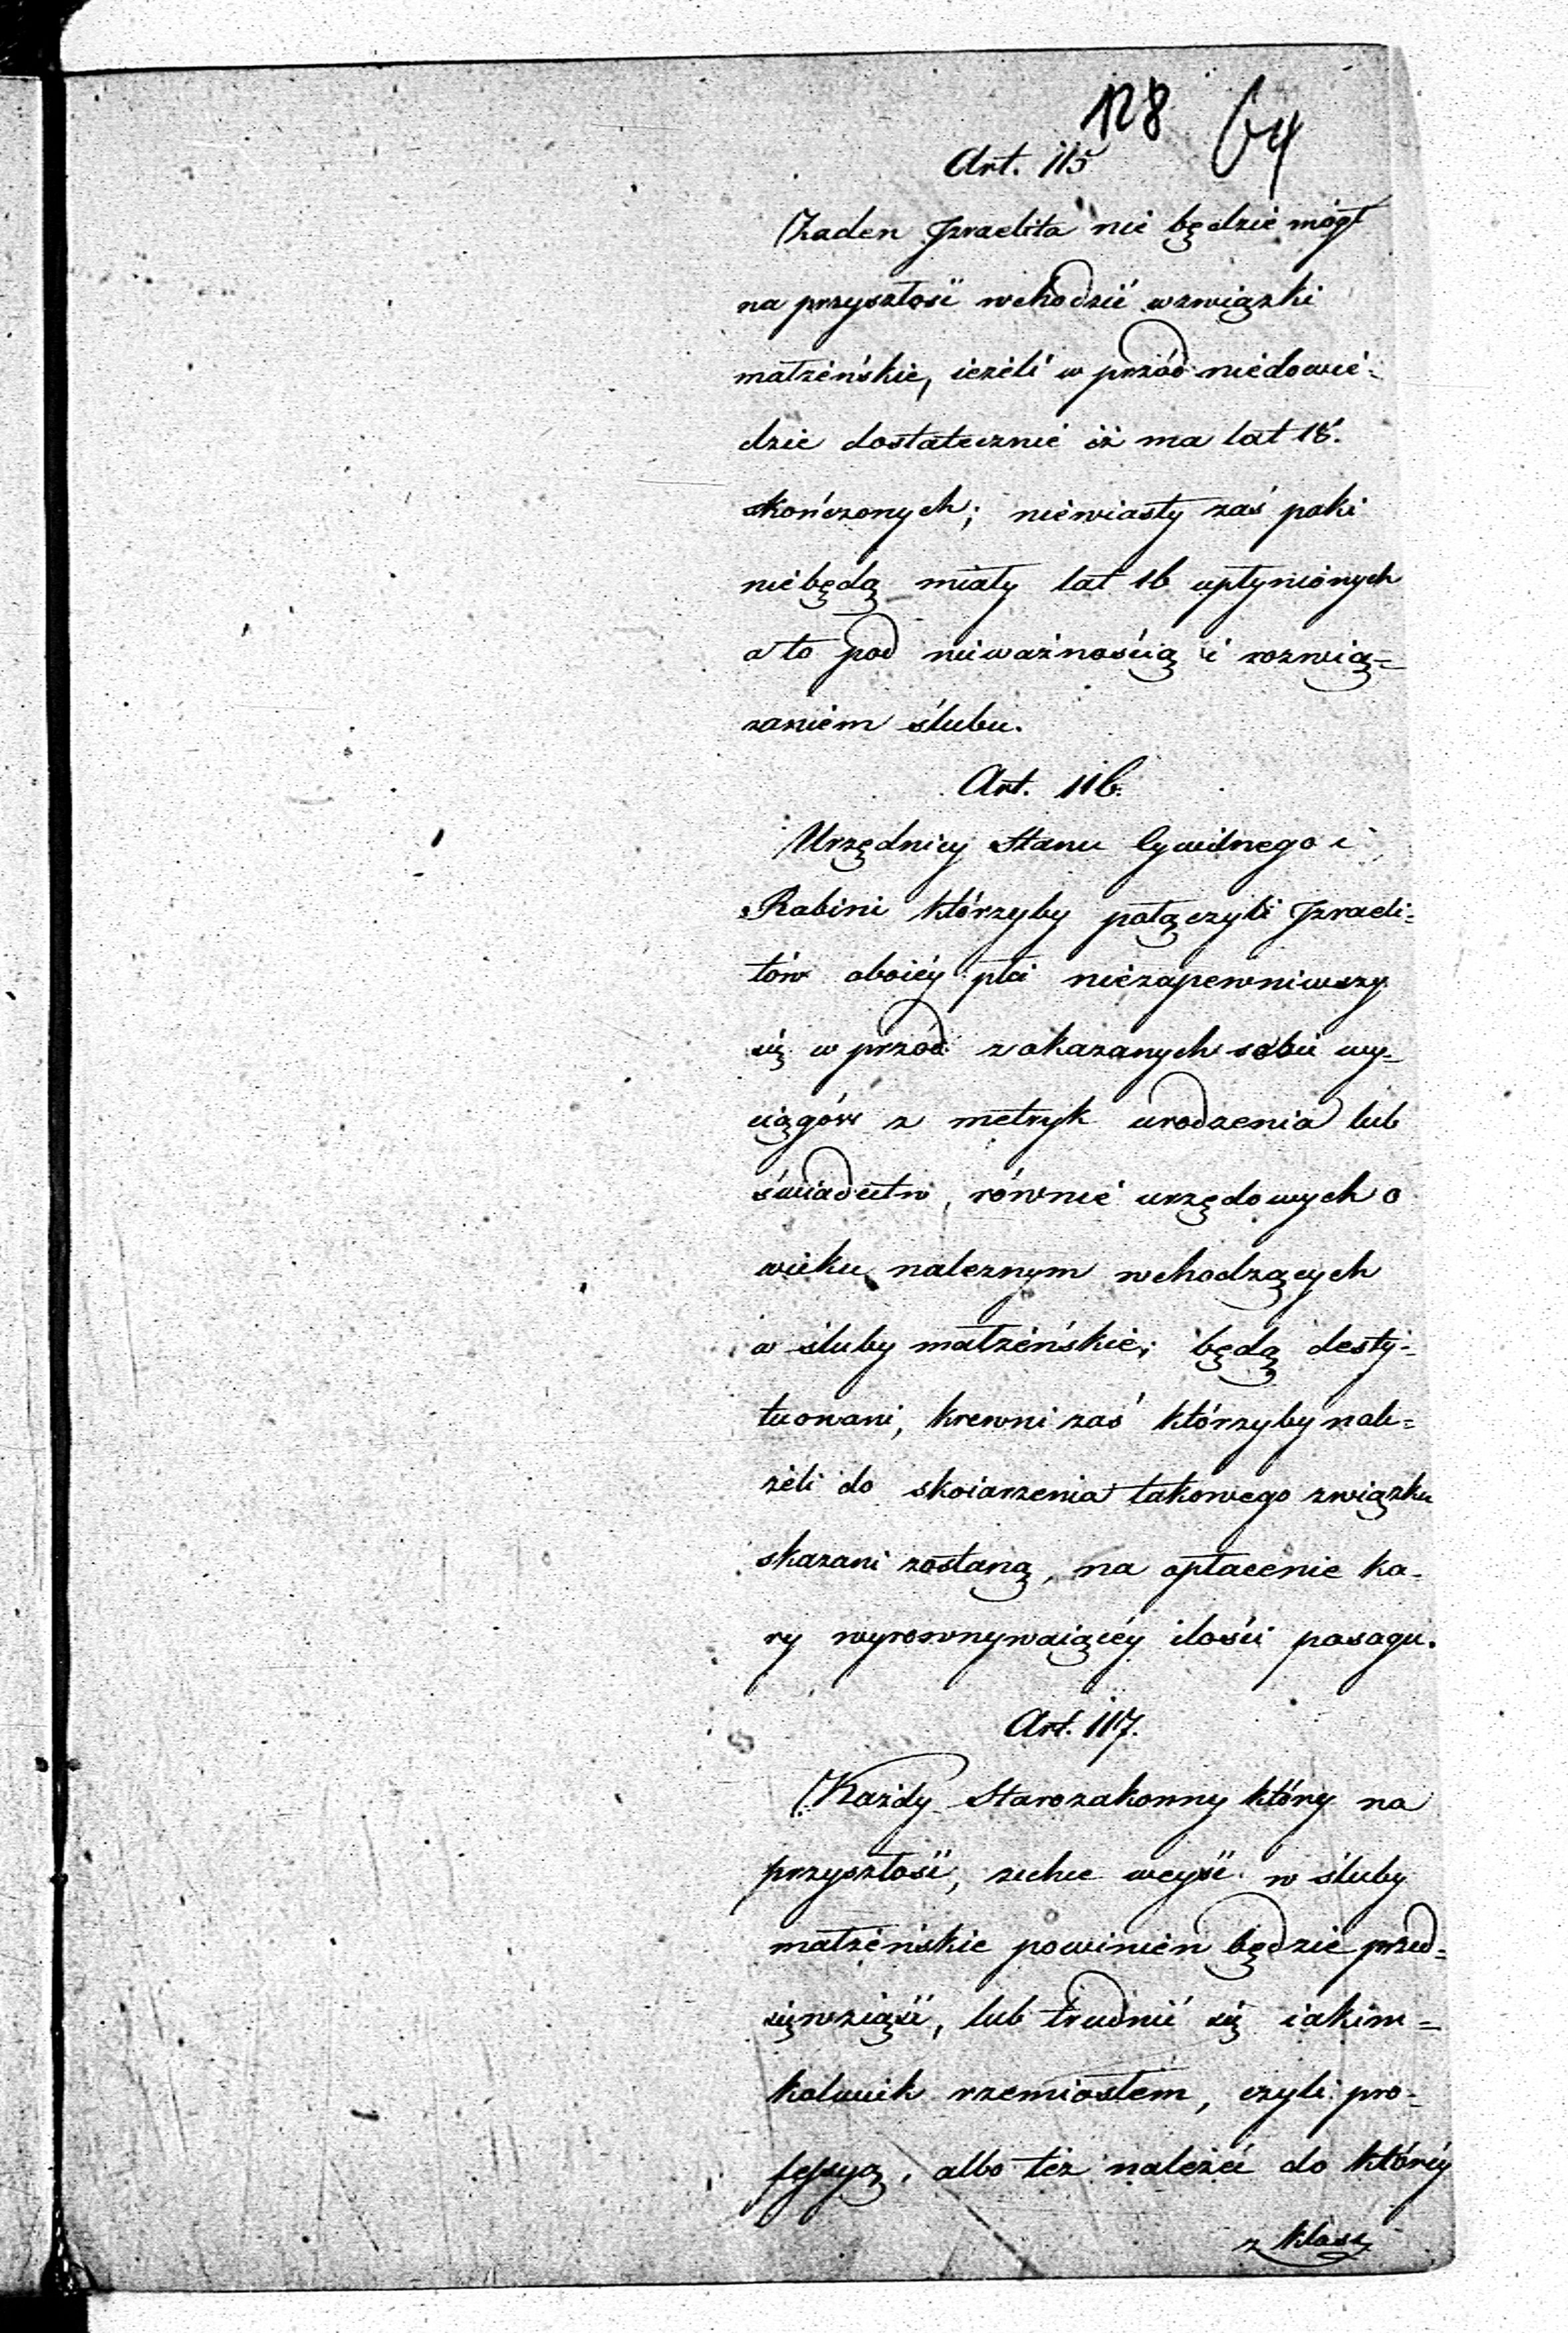 128 64
Art. 115
Żaden Izraelita nie będzie mógł
na przyszłość wchodzić wzwiązki
małżeńskie, ieżeli w przód niedowie-
dzie dostatecznie iż ma lat 18.
skończonych; niewiasty zaś poki
niebędą miały lat 16 upłynionych
a to pod nieważnością i rozwią=
zaniem ślubu.
Art. 116.
Urzędnicy Stanu Cywilnego i
Rabini którzyby połączyli Izraeli-
tów oboiéy płci niezapewniwszy
się w przód z okazanych sobie wy-
ciągów z metryk urodzenia lub
świadectw, równie urzędowych o
wieku należnym wchodzących
w śluby małżeńskie; będą desty-
tuowani, krewni zaś którzyby nale=
żeli do skoiarzenia takowego związku
skazani zostaną, na opłacenie ka-
ry wyrownywaiącéy ilości posagu.
Art. 117.
Każdy Starozakonny który na
przyszłość, zechce weyść w śluby
małżeńskie powinien będzie przed=
sięwziąść, lub trudnić się iakim=
kolwiek rzemiosłem, czyli pro-
fessyą, albo też należeć do któréy
z klass